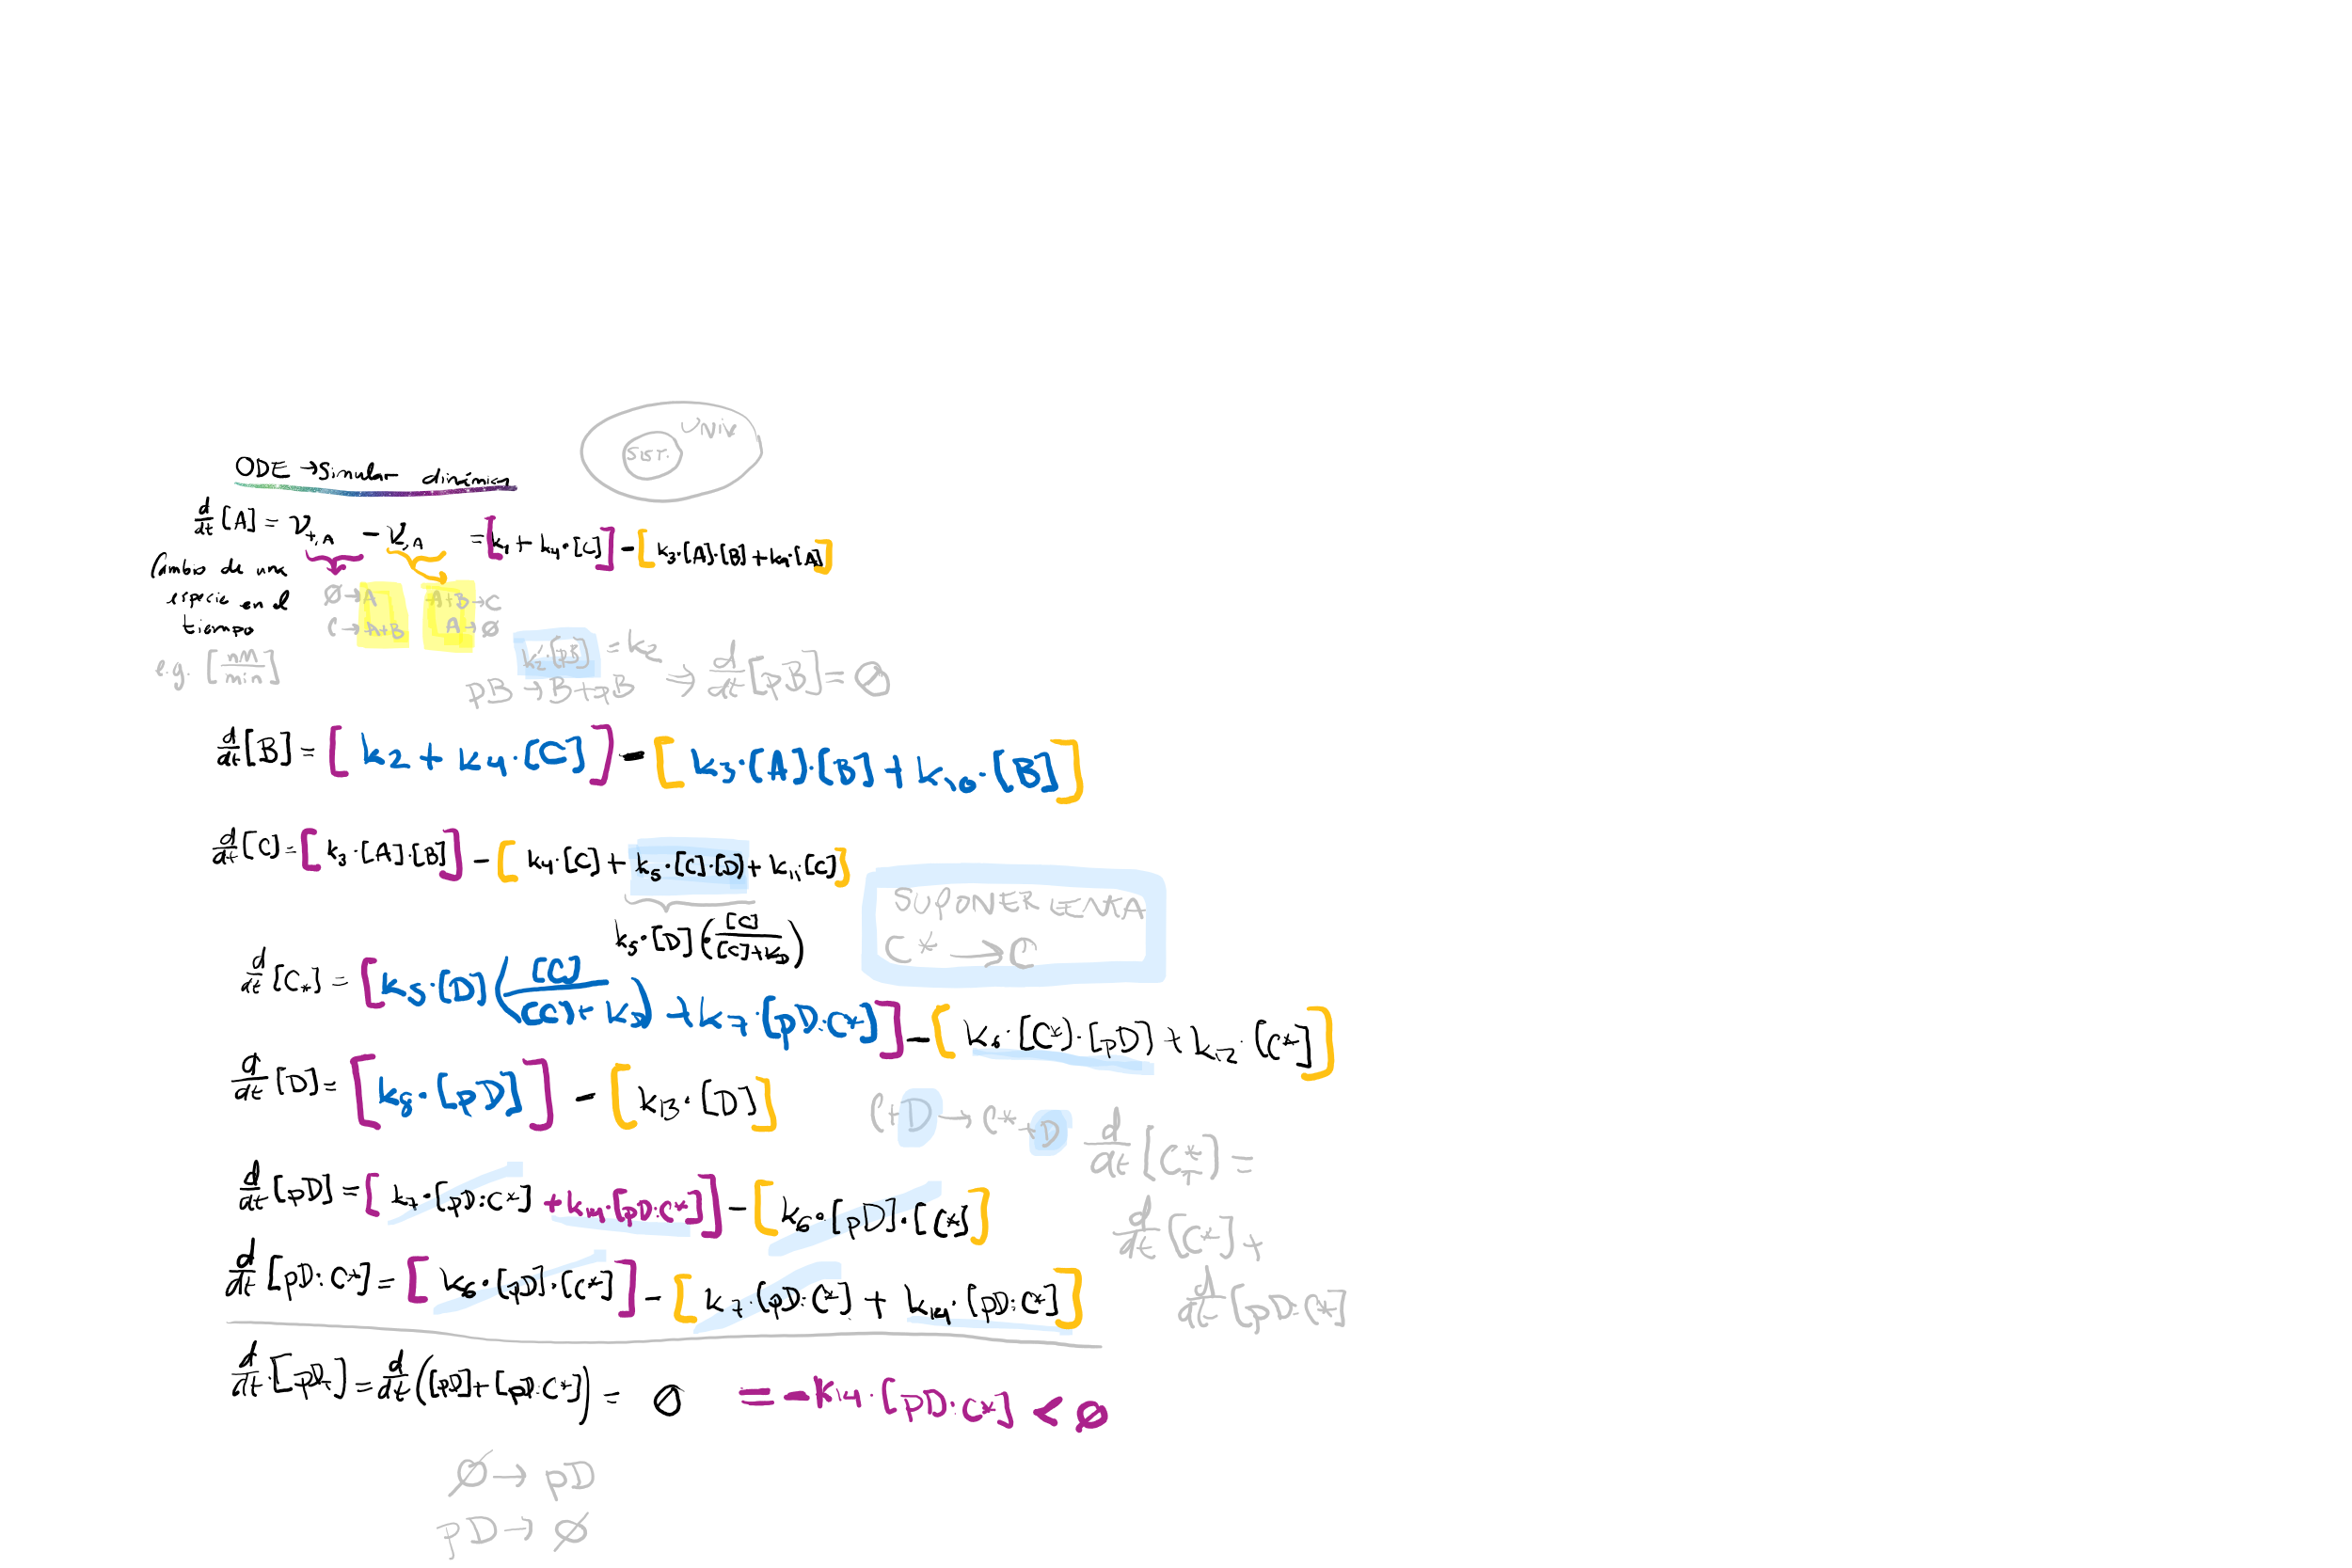 UNIV
SIST.
ODE → Simular dinámica
d/dt [A] = V+,A − V-,A = [k1 + k4·[C]] − [k3·[A]·[B] + k9·[A]]
Cambio de una
especie en el
tiempo
e.g. [nM/min]
∅→A
C→A+B
A+B→C
A→∅
k2'·[pB] = k2
pB → B+pB ⇒ d/dt [pB] = ∅
d/dt [B] = [k2 + k4·[C]] − [k3·[A]·[B] + k10·[B]]
d/dt [C] = [k3·[A]·[B]] − [k4·[C] + k5·[C]·[D] + k11·[C]]
k5·[D]·([C]/([C]+KD))
SUPONER LENTA
C* → C
d/dt [C*] = [k5·[D]([C]/([C]+KD)) + k7·[pD:C*]] − [k6·[C*]·[pD] + k12·[C*]]
d/dt [D] = [k8·[pD]] − [k13·[D]]
C+D → C*+D
d/dt [C*T] =
d/dt [C*] +
d/dt [pD:C*]
d/dt [pD] = [k7·[pD:C*] + k14·[pD:C*]] − [k6·[pD]·[C*]]
d/dt [pD:C*] = [k6·[pD]·[C*]] − [k7·[pD:C*] + k14·[pD:C*]]
d/dt [pDT] = d/dt ([pD]+[pD:C*]) = ∅ = −k14·[pD:C*] < ∅
∅ → pD
pD → ∅